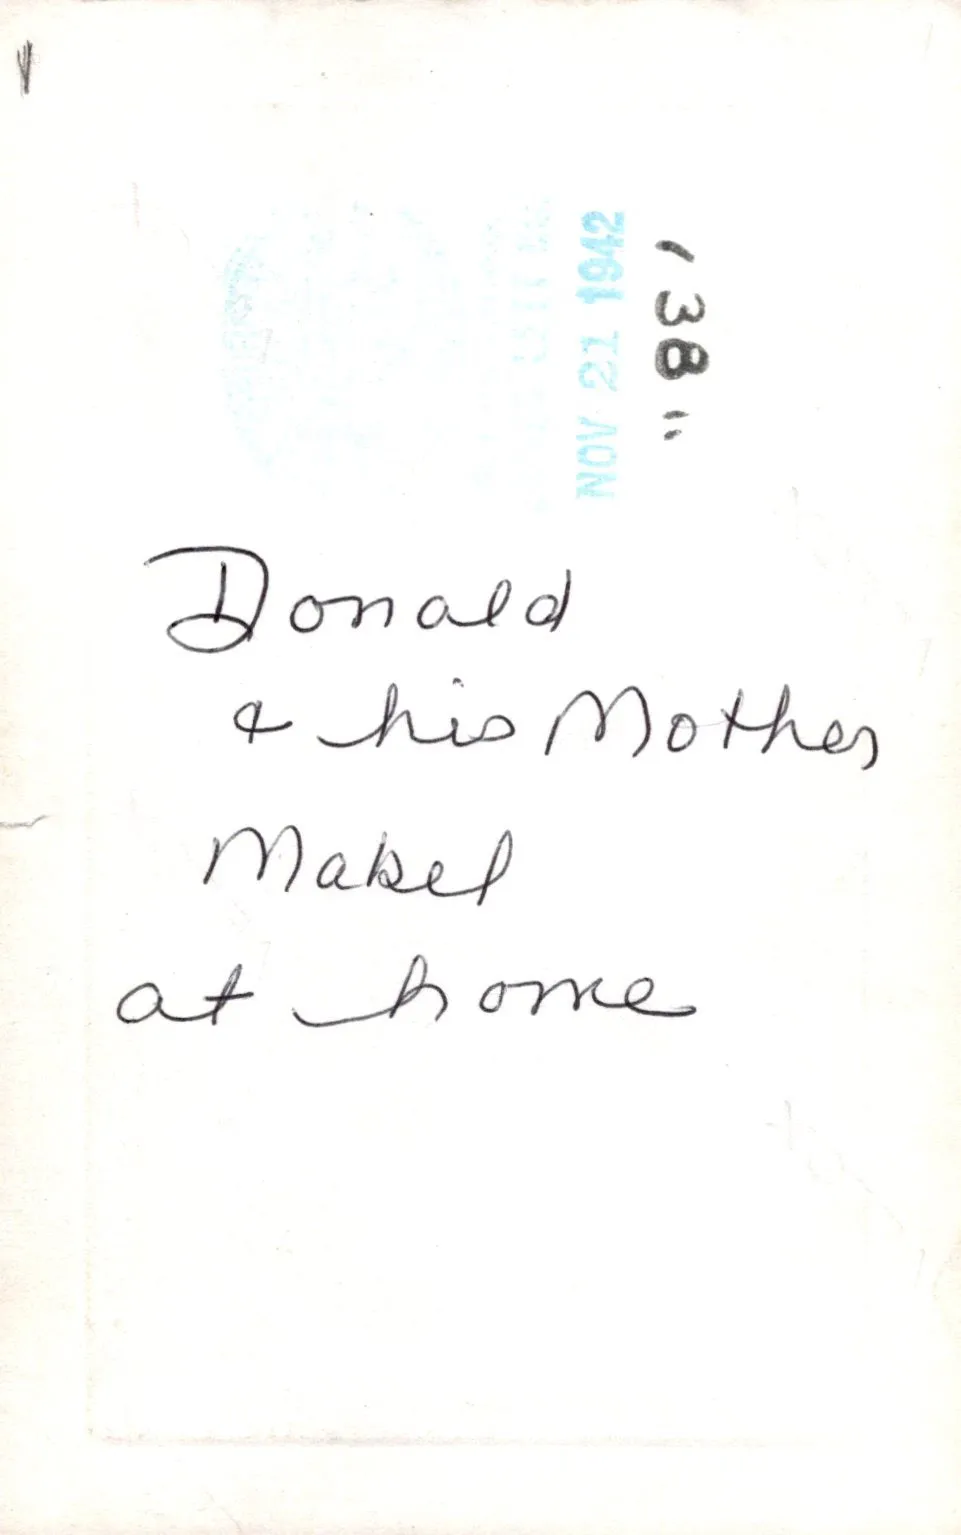 NOV 21 1942
138 "
Donald
& his Mother
Mabel
at home